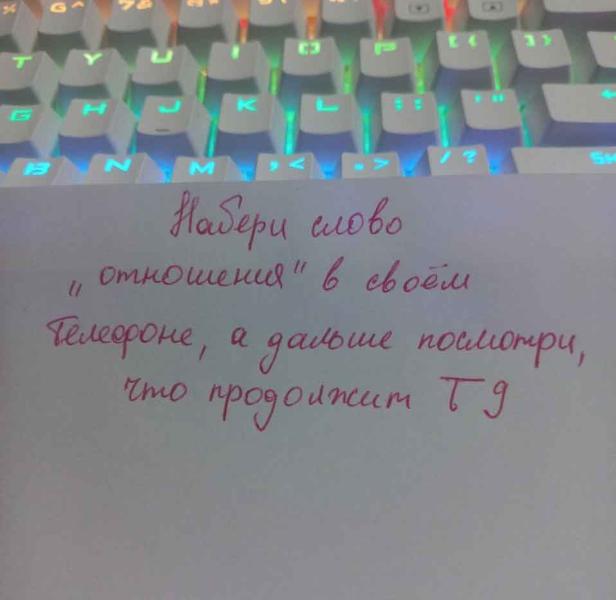 % G^ 7& 8*
T Y U I O P [{ ]}
G H J K L ;: '"
B N M ,< .> /?
Набери слово
„отношения" в своём
телефоне, а дальше посмотри,
что продолжит Т9